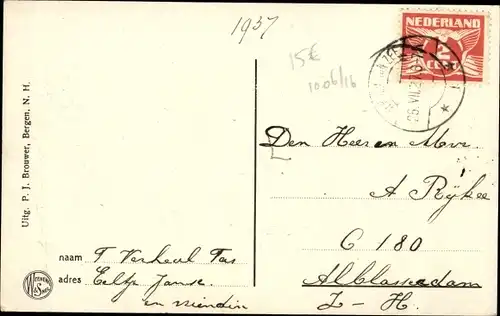 1937
15€
1006/16
NEDERLAND
2 CENT
26.VII.2
Uitg. P. J. Brouwer, Bergen, N. H.
Den Heer en Mevr.
A Rijkee
C 180
Alblasserdam
Z-H.
naam T Verheul Tas
adres Eeltje Janse
en vriendin